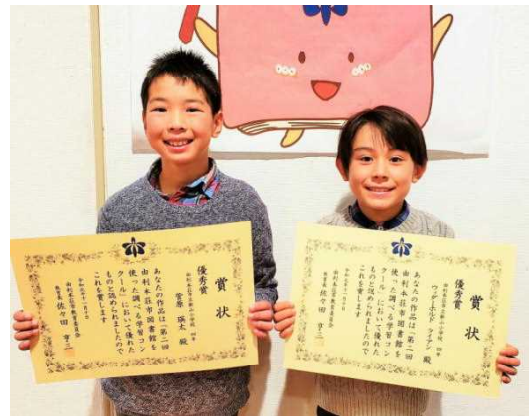 賞状
優秀賞
由利本荘市立新山小学校 四年
菅原 瑛太 殿
あなたの作品は「第二回
由利本荘市図書館を
使った調べる学習コン
クール」において優れた
ものと認められましたので
これを賞します
由利本荘市教育委員会
教育長 佐々田 亨三
賞状
優秀賞
由利本荘市立新山小学校 四年
殿
あなたの作品は「第二回
由利本荘市図書館を
使った調べる学習コン
クール」において優れた
ものと認められましたので
これを賞します
由利本荘市教育委員会
教育長 佐々田 亨三